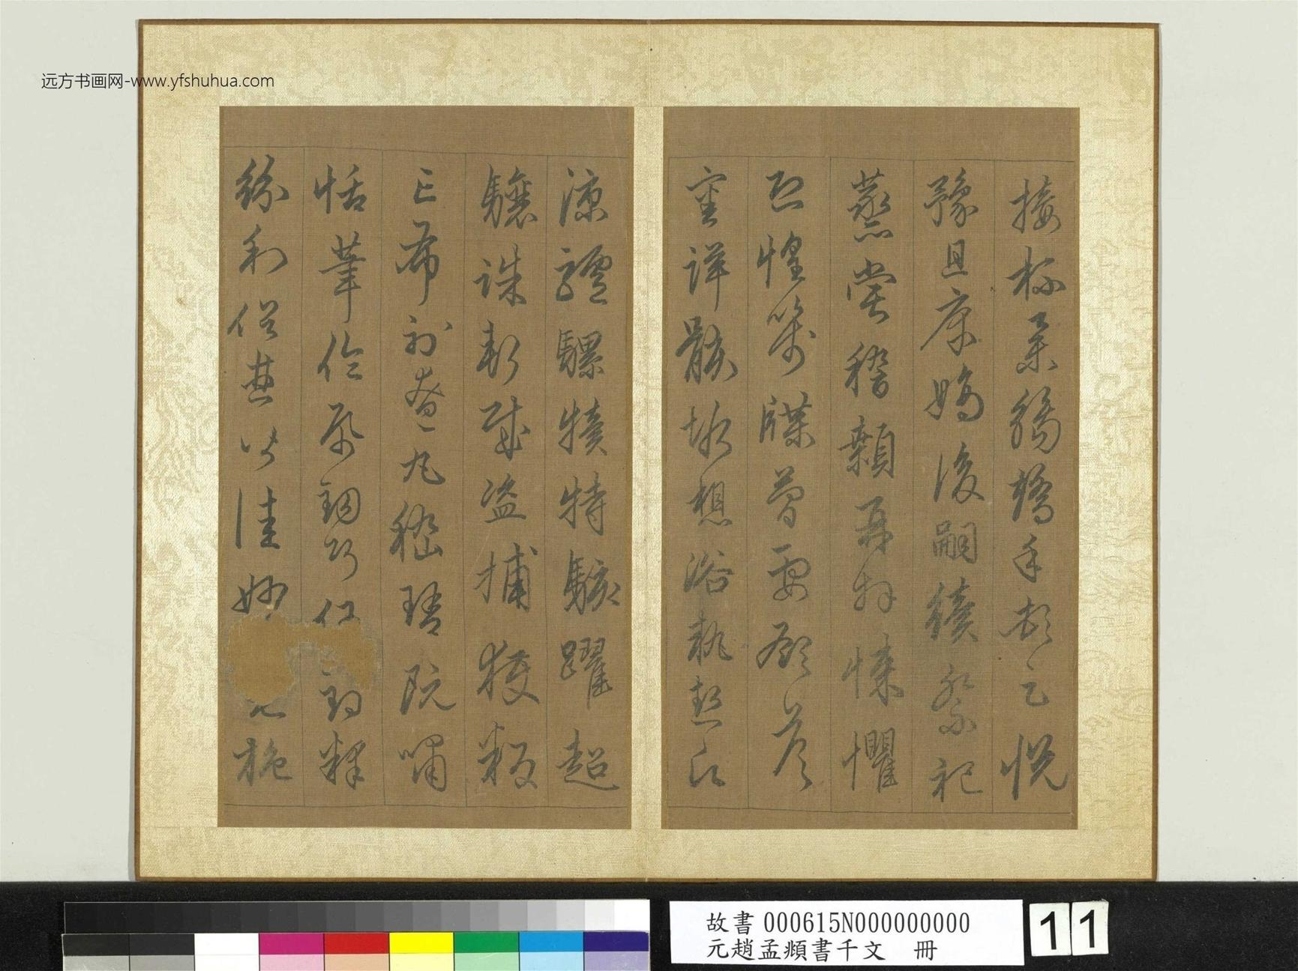 远方书画网-www.yfshuhua.com
接杯举觞矫手顿足悦
豫且康嫡後嗣續祭祀
蒸嘗稽顙再拜悚懼
恐惶箋牒簡要顧答
審詳骸垢想浴執熱願
凉驢騾犢特駭躍超
驤誅斬賊盜捕獲叛
亡布射遼丸嵇琴阮嘯
恬筆倫紙鈞巧任釣釋
紛利俗並皆佳妙施
故書 000615N000000000
元趙孟頫書千文 冊
11